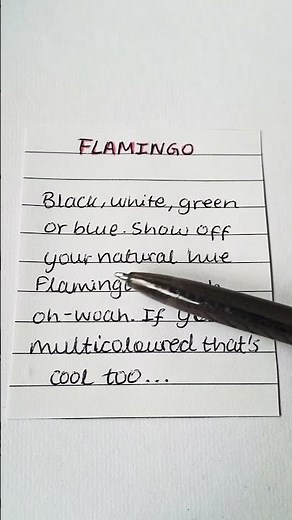 FLAMINGO
Black, white, green
or blue. Show off
your natural hue
oh-woah. If
multicoloured that's
cool too...